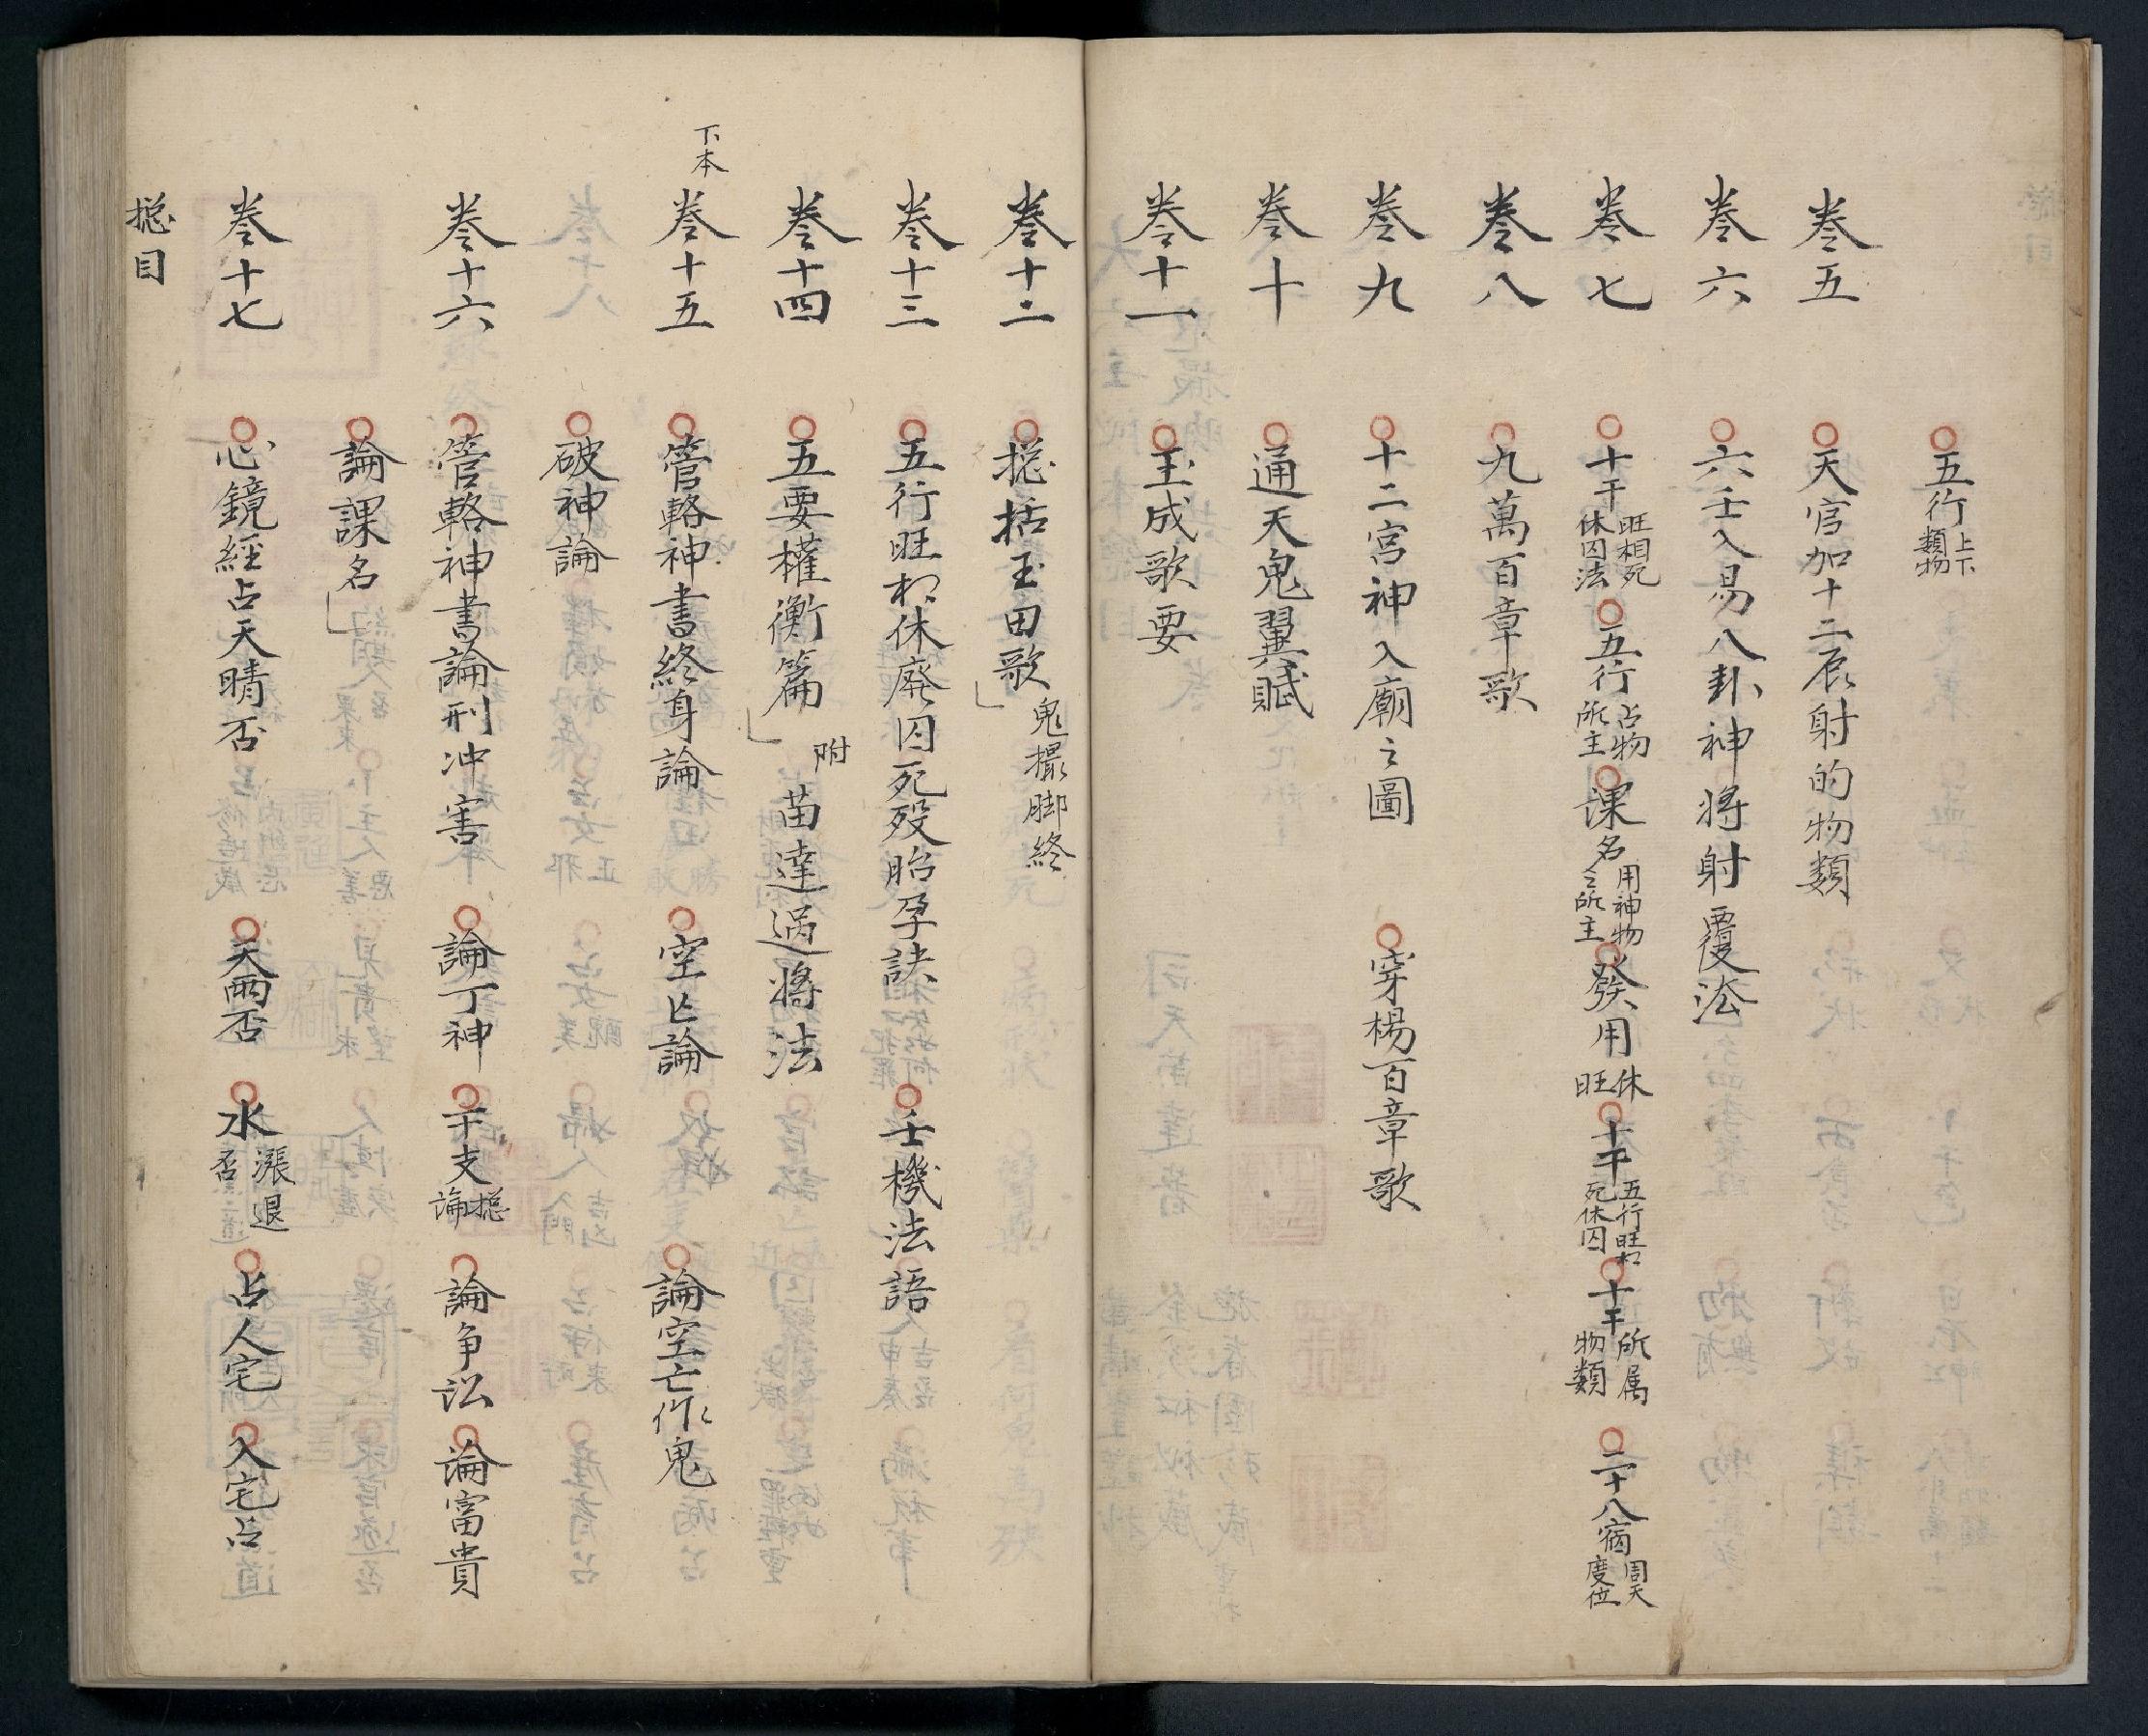 五行上下類物
卷五 天官加十二辰射的物類
卷六 六壬入易八卦神將射覆法
卷七 十干旺相死休囚法 五行占物所主 課名用神物之所主 發用休旺 十干五行旺相死休囚 十干所属物類 二十八宿周天度位
卷八 九萬百章歌
卷九 十二宮神入廟之圖 穿楊百章歌
卷十 通天鬼翼賦
卷十一 玉成歌要
卷十二 捴括玉田歌 鬼撮脚終
卷十三 五行旺相休廢囚死殁胎孕訣 壬機法語
卷十四 五要權衡篇 附苗達過將法
下本
卷十五 管輅神書終身論 空亡論 論空亡作鬼
破神論
卷十六 管輅神書論刑冲害 論丁神 干支捴論 論争訟 論富貴
論課名
卷十七 心鏡經占天晴否 天雨否 水漲退否 占人宅 入宅占
捴目